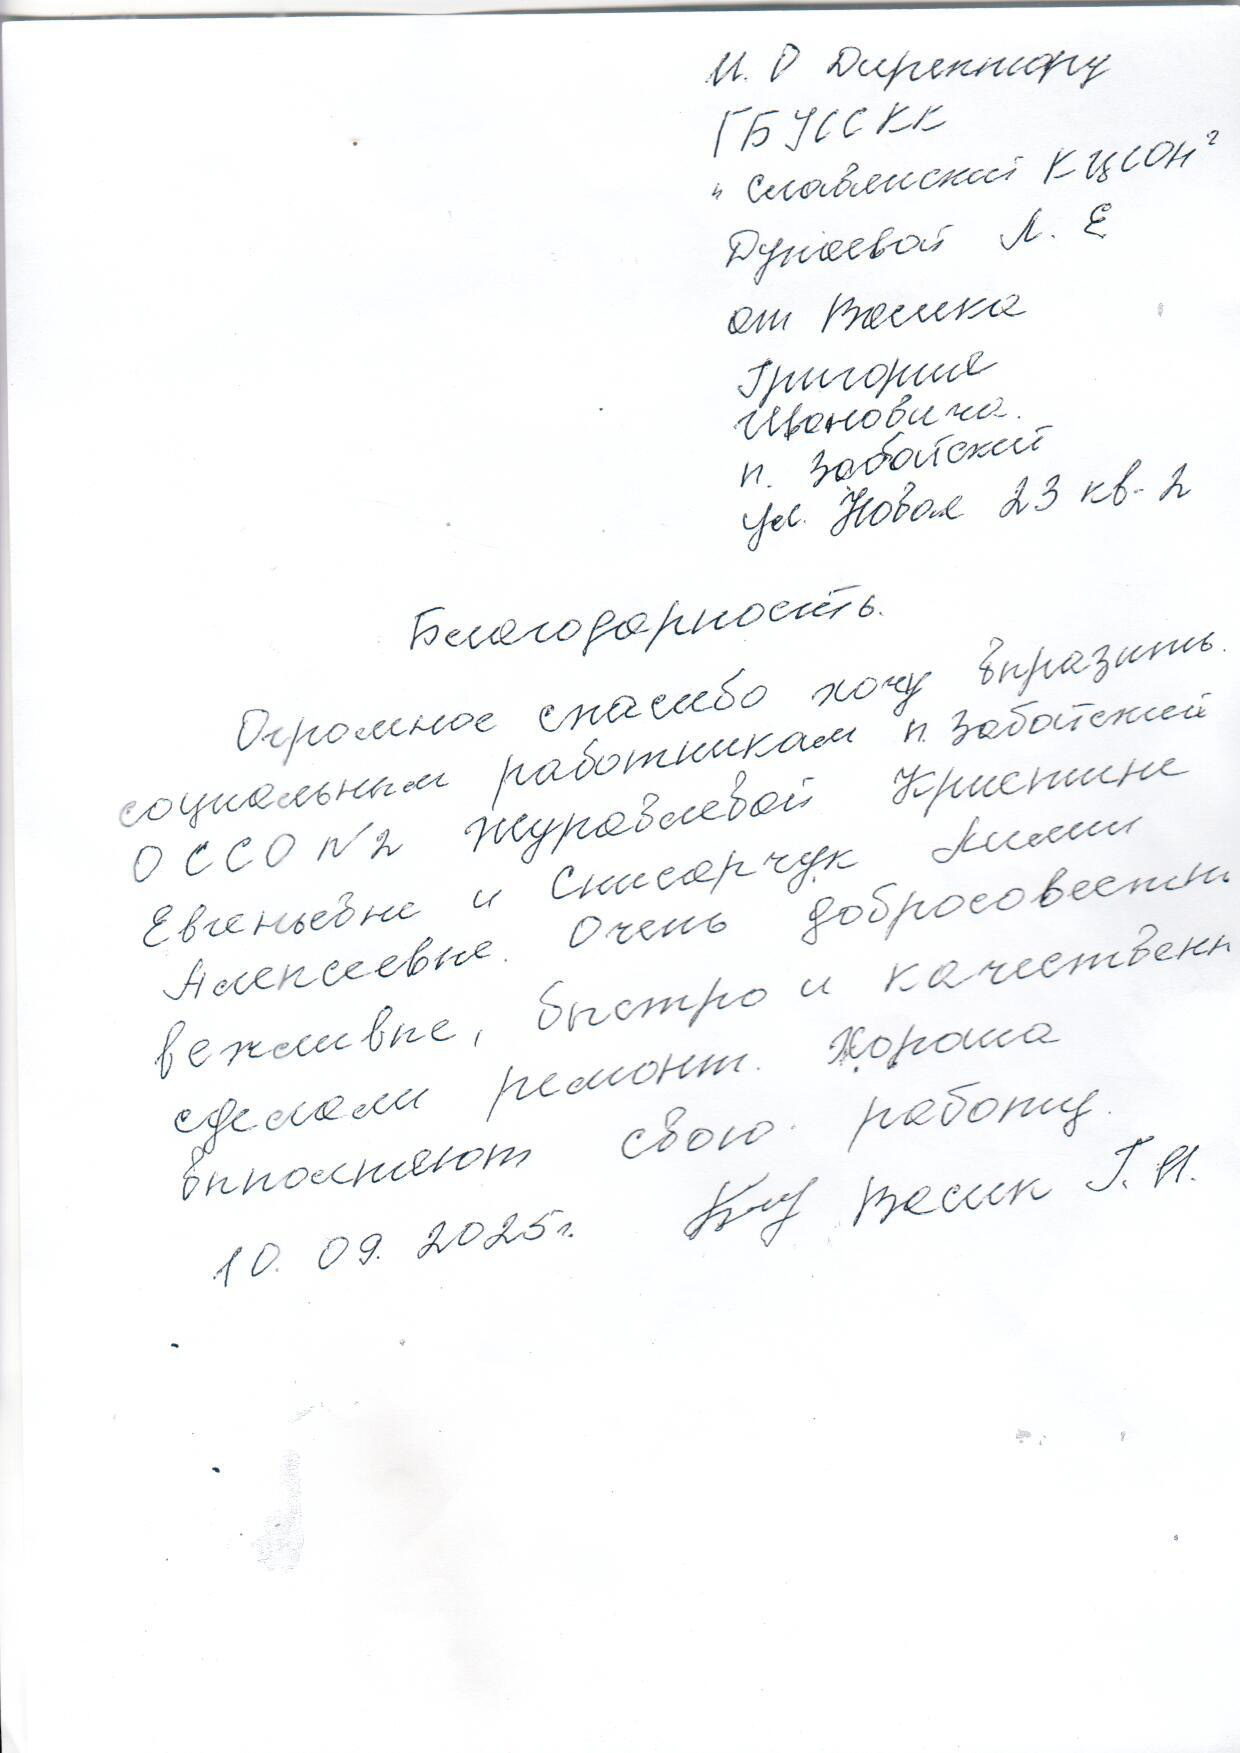 И. О Директору
ГБУ СО КК
"Славянский КЦСОН"
Дунаевой Л. Е
от Васика
Григория
Ивановича.
п. Забойский
ул. Новая 23 кв. 2
Благодарность.
Огромное спасибо хочу выразить.
социальным работникам п. Забойский
ОССО №2 Журавлевой Кристине
Евгеньевне и Снисарчук Лилии
Алексеевне. Очень добросовестны
вежливые, быстро и качественн
сделали ремонт. Хорошо
выполняют свою работу.
10. 09. 2025г. Васик Г. И.